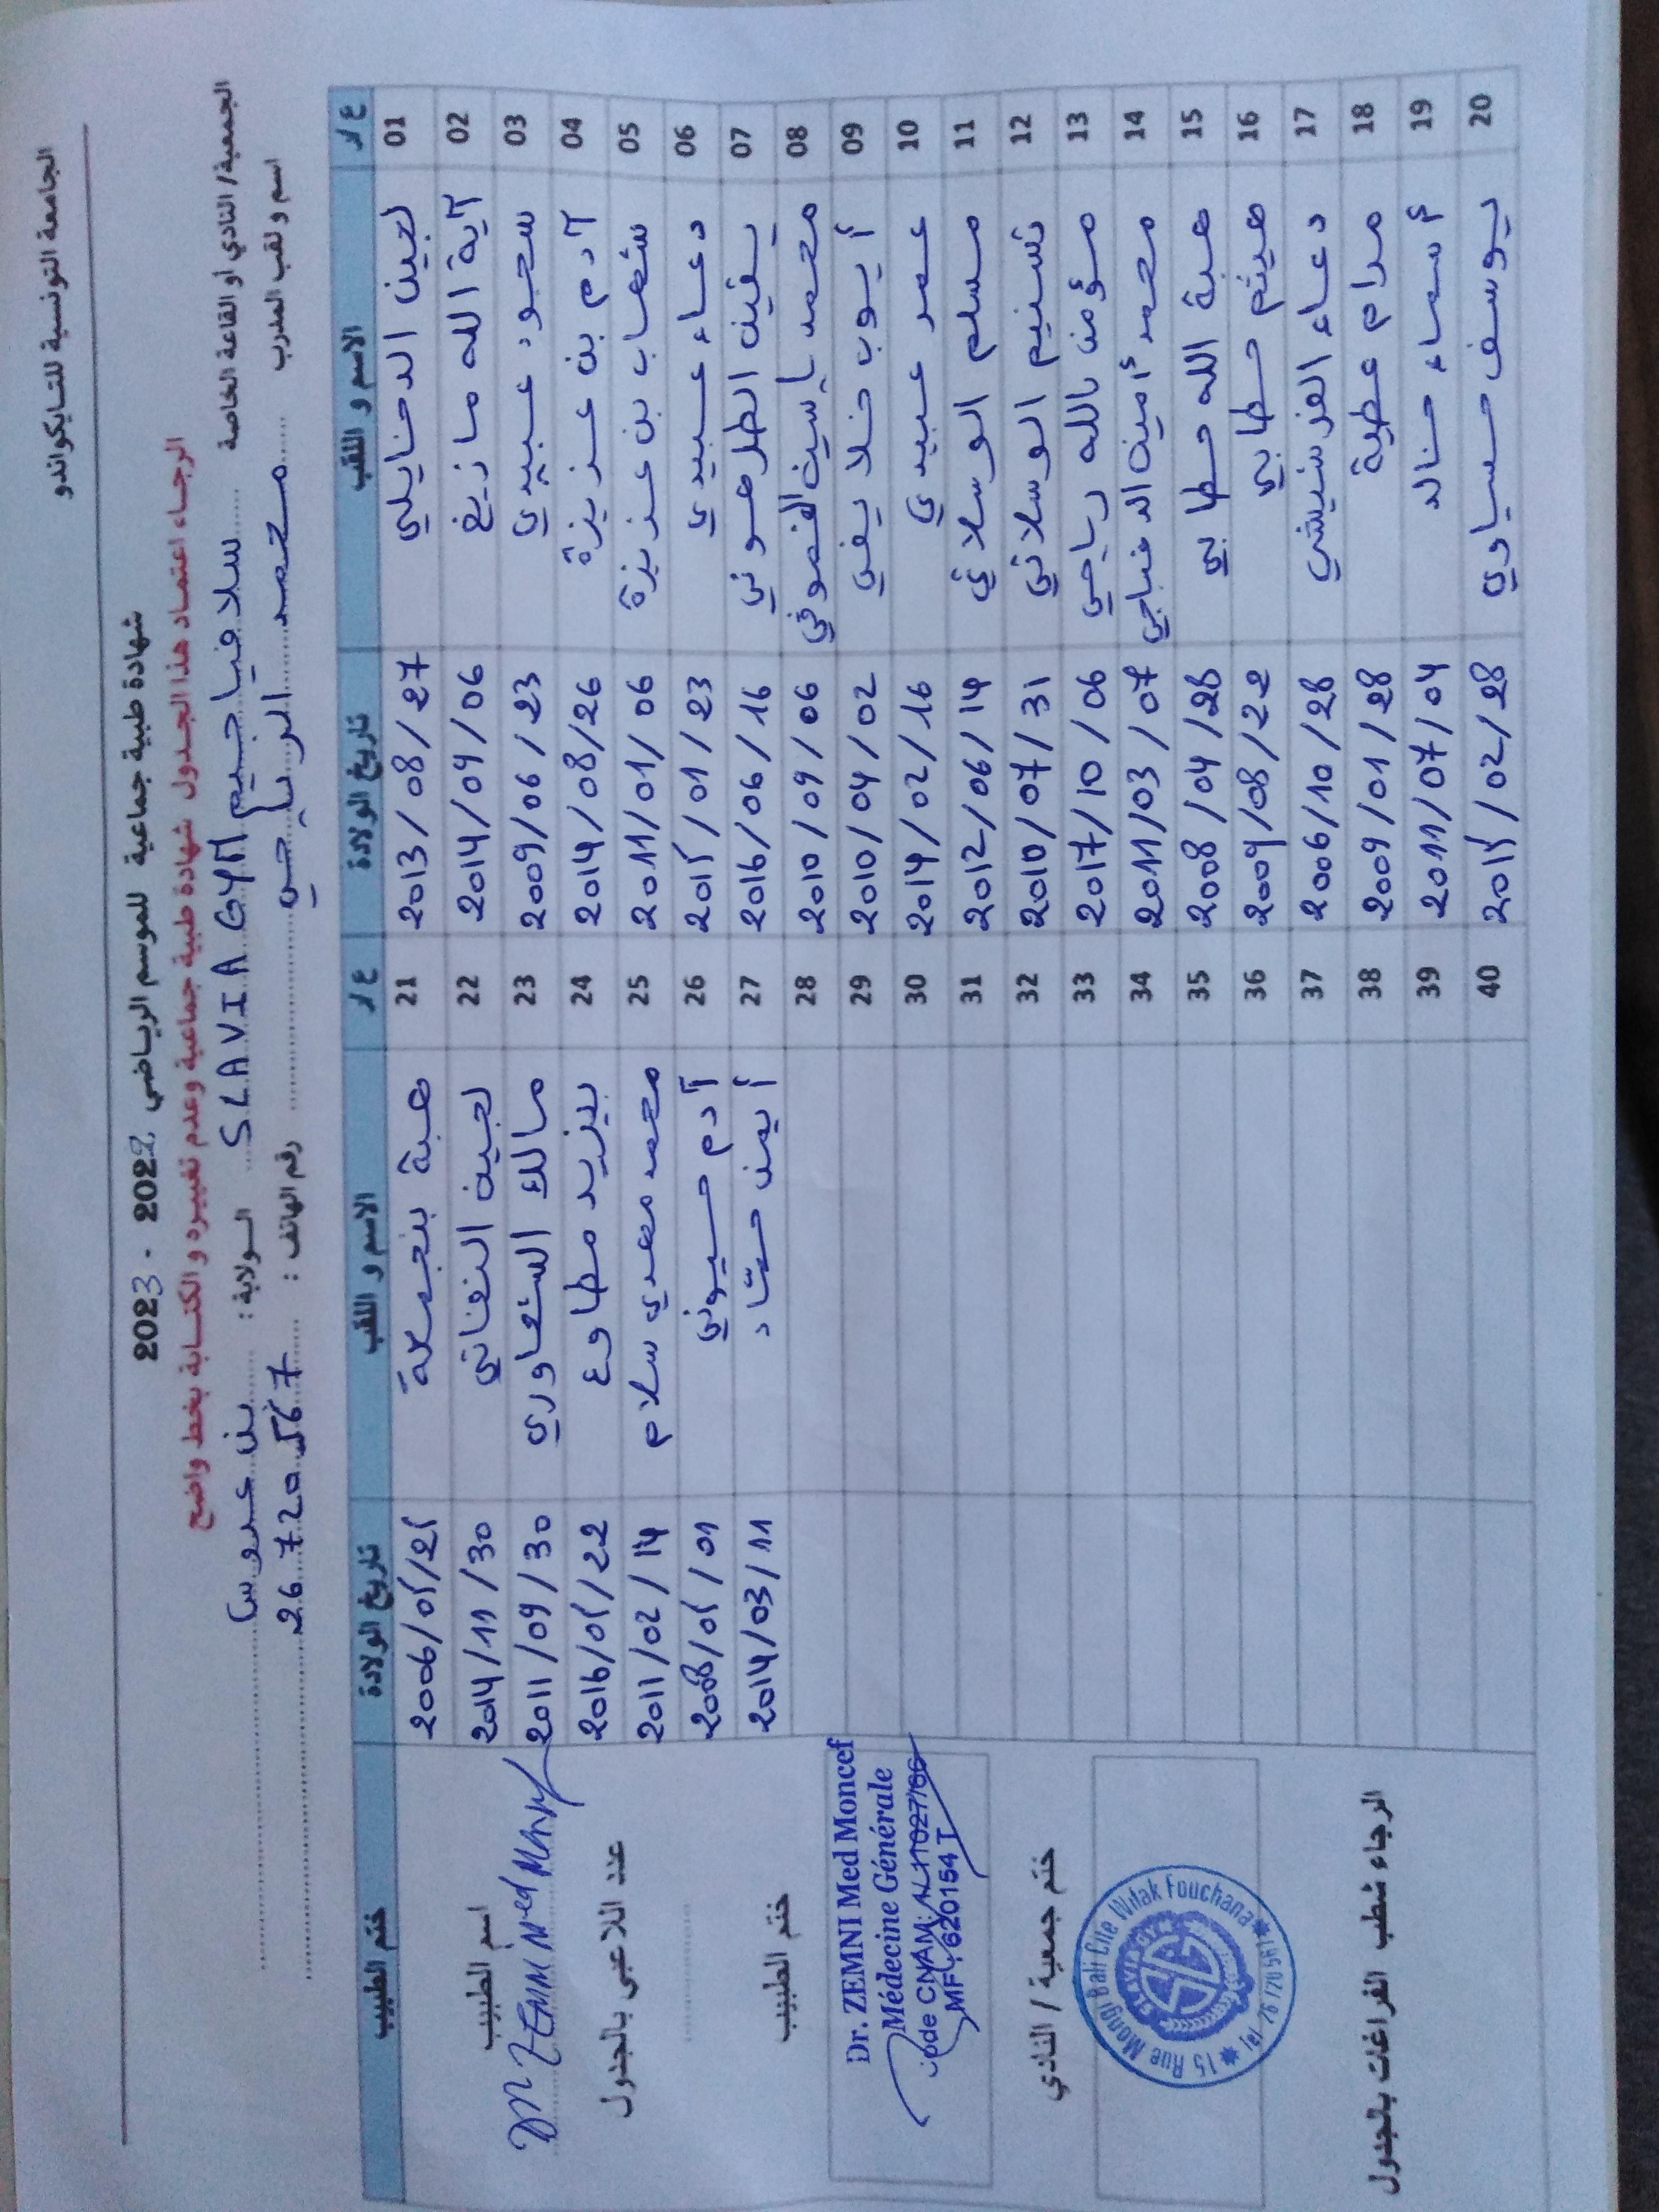 الجامعة التونسية للتايكواندو
شهادة طبية جماعية للموسم الرياضي 2022 - 2023
الرجاء اعتماد هذا الجدول شهادة طبية جماعية وعدم تغييره و الكتابة بخط واضح
الجمعية/ النادي أو القاعة الخاصة سلافيا جيم SLAVIA GYM الولاية : بن عروس
اسم و لقب المدرب محمد الرياحي رقم الهاتف : 26 720 567
ع/ر الاسم و اللقب تاريخ الولادة ع/ر الاسم و اللقب تاريخ الولادة ختم الطبيب
01 لجين الدخايلي 2013/08/27 21 هبة بنجمعة 2006/05/25
02 آية الله مازيغ 2014/09/06 22 لجين النفاتي 2014/11/30
03 سجود عبيدي 2009/06/23 23 مالك الشعاوري 2011/09/30
04 آدم بن عزيزة 2014/08/26 24 يزيد مطاوع 2016/05/22
05 شهاب بن عزيزة 2011/01/06 25 محمد مهدي سلام 2011/02/14
06 دعاء عبيدي 2015/01/23 26 آدم حسيوني 2008/05/01
07 يقين الطرهوني 2016/06/16 27 أيمن حتاد 2014/03/11
08 محمد ياسين 2010/09/06 28
09 أيوب خلايفي 2010/04/02 29
10 عمر عبيدي 2014/02/16 30
11 مسلم الوسلاتي 2012/06/14 31
12 تسنيم الوسلاتي 2010/07/31 32
13 مؤمن بالله رياحي 2017/10/06 33
14 محمد أمين الدغباجي 2011/03/07 34
15 هبة الله حطابي 2008/04/28 35
16 هيثم حطابي 2009/08/22 36
17 دعاء الفرشيشي 2006/10/28 37
18 مرام عطية 2009/01/28 38
19 أسماء خالد 2011/07/04 39
20 يوسف عيساوي 2015/02/28 40
اسم الطبيب
Dr ZEMNI Med Moncef
عند اللاعبي بالجدول
ختم الطبيب
Dr. ZEMNI Med Moncef
Médecine Générale
MF: 620154 T
ختم جمعية / النادي
15 Rue Mongi Bali Cite Wifak Fouchana
Tel 26 720 567
الرجاء شطب الفراغات بالجدول